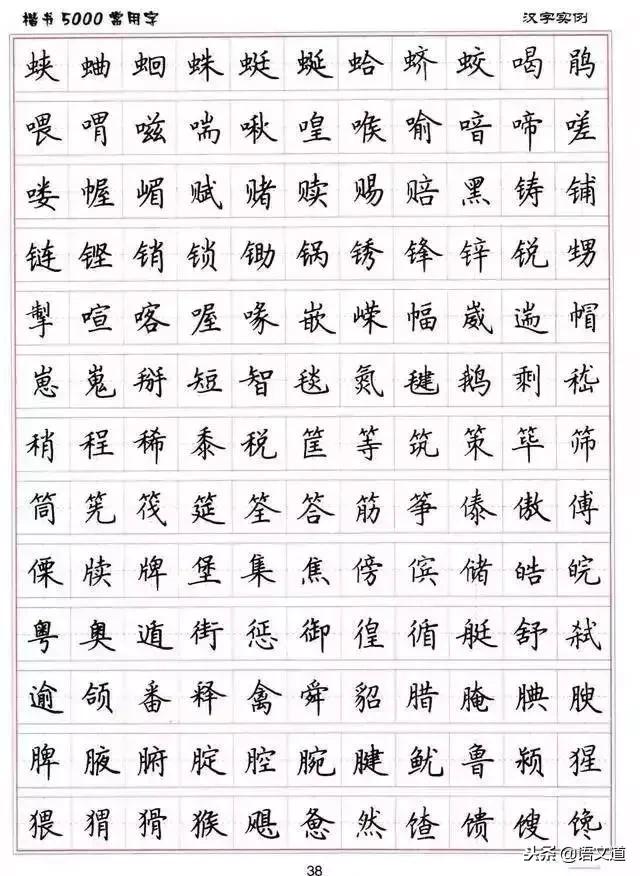 楷书5000常用字 汉字实例
蛱 蛐 蛔 蛛 蜓 蜒 蛤 蛴 蛟 喝 鹃
喂 喟 嗞 喘 啾 喤 喉 喻 喑 啼 嗟
喽 幄 嵋 赋 赌 赎 赐 赔 黑 铸 铺
链 铿 销 锁 锄 锅 锈 锋 锌 锐 甥
掣 喧 喀 喔 喙 嵌 嵘 幅 崴 遄 帽
崽 嵬 掰 短 智 毯 氮 毽 鹅 剩 嵇
稍 程 稀 黍 税 筐 等 筑 策 筚 筛
筒 筅 筏 筵 筌 答 筋 筝 傣 傲 傅
傈 牍 牌 堡 集 焦 傍 傧 储 皓 皖
粤 奥 遁 街 惩 御 徨 循 艇 舒 弑
逾 颌 番 释 禽 舜 貂 腊 腌 腆 腴
脾 腋 腑 腚 腔 腕 腱 鱿 鲁 颍 猩
猥 猬 猾 猴 飓 惫 然 馇 馈 馊 馋
38
头条@语文道